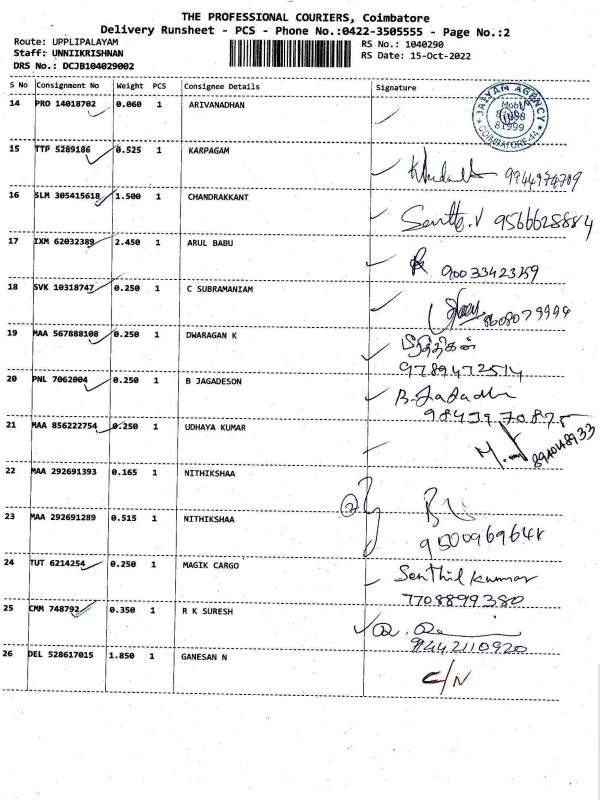 THE PROFESSIONAL COURIERS, Coimbatore
Delivery Runsheet - PCS - Phone No.:0422-3505555 - Page No.:2
Route: UPPLIPALAYAM
RS No.: 1040290
Staff: UNNIIKRISHNAN
RS Date: 15-Oct-2022
DRS No.: DCJB104029002
S No Consignment No Weight PCS Consignee Details Signature
14 PRO 14018702 0.060 1 ARIVANADHAN
JAIYAM AGENCY
COIMBATORE-44
81999
15 TTP 5289186 0.525 1 KARPAGAM
16 SLM 305415618 1.500 1 CHANDRAKKANT
Sentho.V 9566628884
17 IXM 62032389 2.450 1 ARUL BABU
9003342359
18 SVK 10318747 0.250 1 C SUBRAMANIAM
8608079994
19 MAA 567888108 0.250 1 DWARAGAN K
9789472514
20 PNL 7062004 0.250 1 B JAGADESON
9843970875
21 MAA 856222754 0.250 1 UDHAYA KUMAR
8940148933
22 MAA 292691393 0.165 1 NITHIKSHAA
23 MAA 292691289 0.515 1 NITHIKSHAA
24 TUT 6214254 0.250 1 MAGIK CARGO
Senthil kumar
7708899380
25 CMM 748792 0.350 1 R K SURESH
9442110920
26 DEL 528617015 1.850 1 GANESAN N
C/N